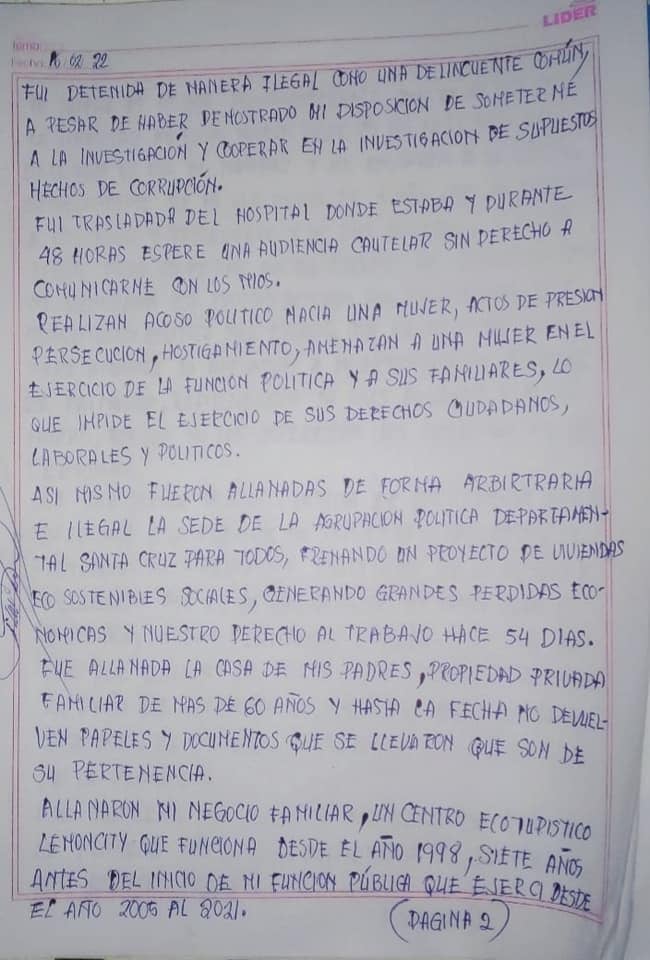 LIDER
Fecha: 16/02/22
FUI DETENIDA DE MANERA ILEGAL COMO UNA DELINCUENTE COMÚN,
A PESAR DE HABER DEMOSTRADO MI DISPOSICION DE SOMETERME
A LA INVESTIGACIÓN Y COOPERAR EN LA INVESTIGACION DE SUPUESTOS
HECHOS DE CORRUPCIÓN.
FUI TRASLADADA DEL HOSPITAL DONDE ESTABA Y DURANTE
48 HORAS ESPERE UNA AUDIENCIA CAUTELAR SIN DERECHO A
COMUNICARME CON LOS MIOS.
REALIZAN ACOSO POLITICO HACIA UNA MUJER, ACTOS DE PRESION
PERSECUCION, HOSTIGAMIENTO, AMENAZAN A UNA MUJER EN EL
EJERCICIO DE LA FUNCION POLITICA Y A SUS FAMILIARES, LO
QUE IMPIDE EL EJERCICIO DE SUS DERECHOS CIUDADANOS,
LABORALES Y POLITICOS.
ASI MISMO FUERON ALLANADAS DE FORMA ARBIRTRARIA
E ILEGAL LA SEDE DE LA AGRUPACION POLITICA DEPARTAMEN-
TAL SANTA CRUZ PARA TODOS, FRENANDO UN PROYECTO DE VIVIENDAS
ECO SOSTENIBLES SOCIALES, GENERANDO GRANDES PERDIDAS ECO-
NOMICAS Y NUESTRO DERECHO AL TRABAJO HACE 54 DIAS.
FUE ALLANADA LA CASA DE MIS PADRES, PROPIEDAD PRIVADA
FAMILIAR DE MAS DE 60 AÑOS Y HASTA LA FECHA NO DEVUEL-
VEN PAPELES Y DOCUMENTOS QUE SE LLEVARON QUE SON DE
SU PERTENENCIA.
ALLANARON MI NEGOCIO FAMILIAR, UN CENTRO ECOTURISTICO
LEMONCITY QUE FUNCIONA DESDE EL AÑO 1998, SIETE AÑOS
ANTES DEL INICIO DE MI FUNCION PÚBLICA QUE EJERCI DESDE
EL AÑO 2005 AL 2021.
(PAGINA 2)